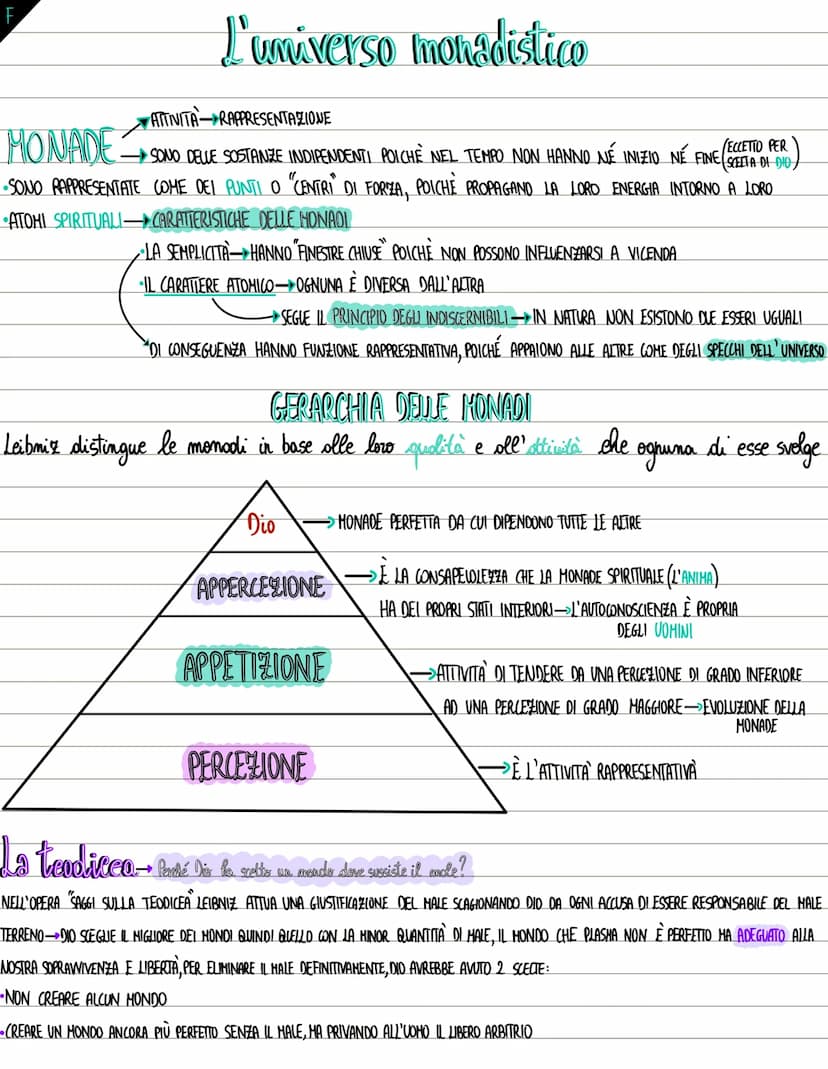 F
L'universo monadistico
ATTIVITÀ→RAPPRESENTAZIONE
MONADE → SONO DELLE SOSTANZE INDIPENDENTI POICHÈ NEL TEMPO NON HANNO NÉ INIZIO NÉ FINE (ECCETTO PER SCELTA DI DIO)
•SONO RAPPRESENTATE COME DEI PUNTI O "CENTRI" DI FORZA, POICHÈ PROPAGANO LA LORO ENERGIA INTORNO A LORO
•ATOMI SPIRITUALI→CARATTERISTICHE DELLE MONADI
•LA SEMPLICITÀ→HANNO "FINESTRE CHIUSE" POICHÈ NON POSSONO INFLUENZARSI A VICENDA
•IL CARATTERE ATOMICO→OGNUNA È DIVERSA DALL'ALTRA
→SEGUE IL PRINCIPIO DEGLI INDISCERNIBILI→IN NATURA NON ESISTONO DUE ESSERI UGUALI
DI CONSEGUENZA HANNO FUNZIONE RAPPRESENTATIVA, POICHÉ APPAIONO ALLE ALTRE COME DEGLI SPECCHI DELL'UNIVERSO
GERARCHIA DELLE MONADI
Leibniz distingue le monadi in base alle loro qualità e all'attività che ognuna di esse svolge
Dio → MONADE PERFETTA DA CUI DIPENDONO TUTTE LE ALTRE
APPERCEZIONE → È LA CONSAPEVOLEZZA CHE LA MONADE SPIRITUALE (L'ANIMA)
HA DEI PROPRI STATI INTERIORI→L'AUTOCONOSCIENZA È PROPRIA
DEGLI UOMINI
APPETIZIONE →ATTIVITÀ DI TENDERE DA UNA PERCEZIONE DI GRADO INFERIORE
AD UNA PERCEZIONE DI GRADO MAGGIORE→EVOLUZIONE DELLA
MONADE
PERCEZIONE →È L'ATTIVITÀ RAPPRESENTATIVA
La teodicea→ Perché Dio ha scelto un mondo dove sussiste il male?
NELL'OPERA "SAGGI SULLA TEODICEA" LEIBNIZ ATTUA UNA GIUSTIFICAZIONE DEL MALE SCAGIONANDO DIO DA OGNI ACCUSA DI ESSERE RESPONSABILE DEL MALE
TERRENO→DIO SCEGLIE IL MIGLIORE DEI MONDI QUINDI QUELLO CON LA MINOR QUANTITÀ DI MALE, IL MONDO CHE PLASMA NON È PERFETTO MA ADEGUATO ALLA
NOSTRA SOPRAVVIVENZA E LIBERTÀ, PER ELIMINARE IL MALE DEFINITIVAMENTE, DIO AVREBBE AVUTO 2 SCELTE:
•NON CREARE ALCUN MONDO
•CREARE UN MONDO ANCORA PIÙ PERFETTO SENZA IL MALE, MA PRIVANDO ALL'UOMO IL LIBERO ARBITRIO